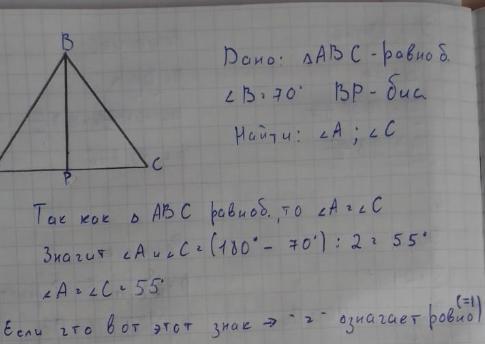 B
Дано: △ABC - равноб.
∠B = 70° BP - бис
Найти: ∠A ; ∠C
C
P
Так как △ ABC равноб., то ∠A = ∠C
Значит ∠A и ∠C = (180° - 70°) : 2 = 55°
∠A = ∠C = 55°
Если что вот этот знак → "=" означает равно (=)